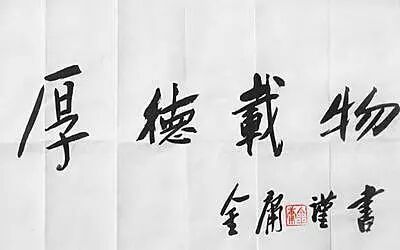 厚德載物
金庸謹書